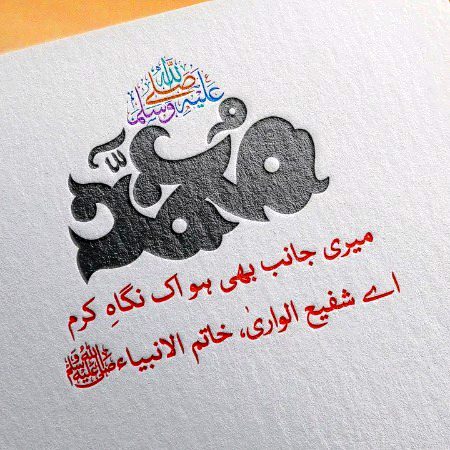 صلى الله عليه وسلم
محمد
میری جانب بھی ہو اک نگاہِ کرم
اے شفیع الواریٰ، خاتم الانبیاء ﷺ